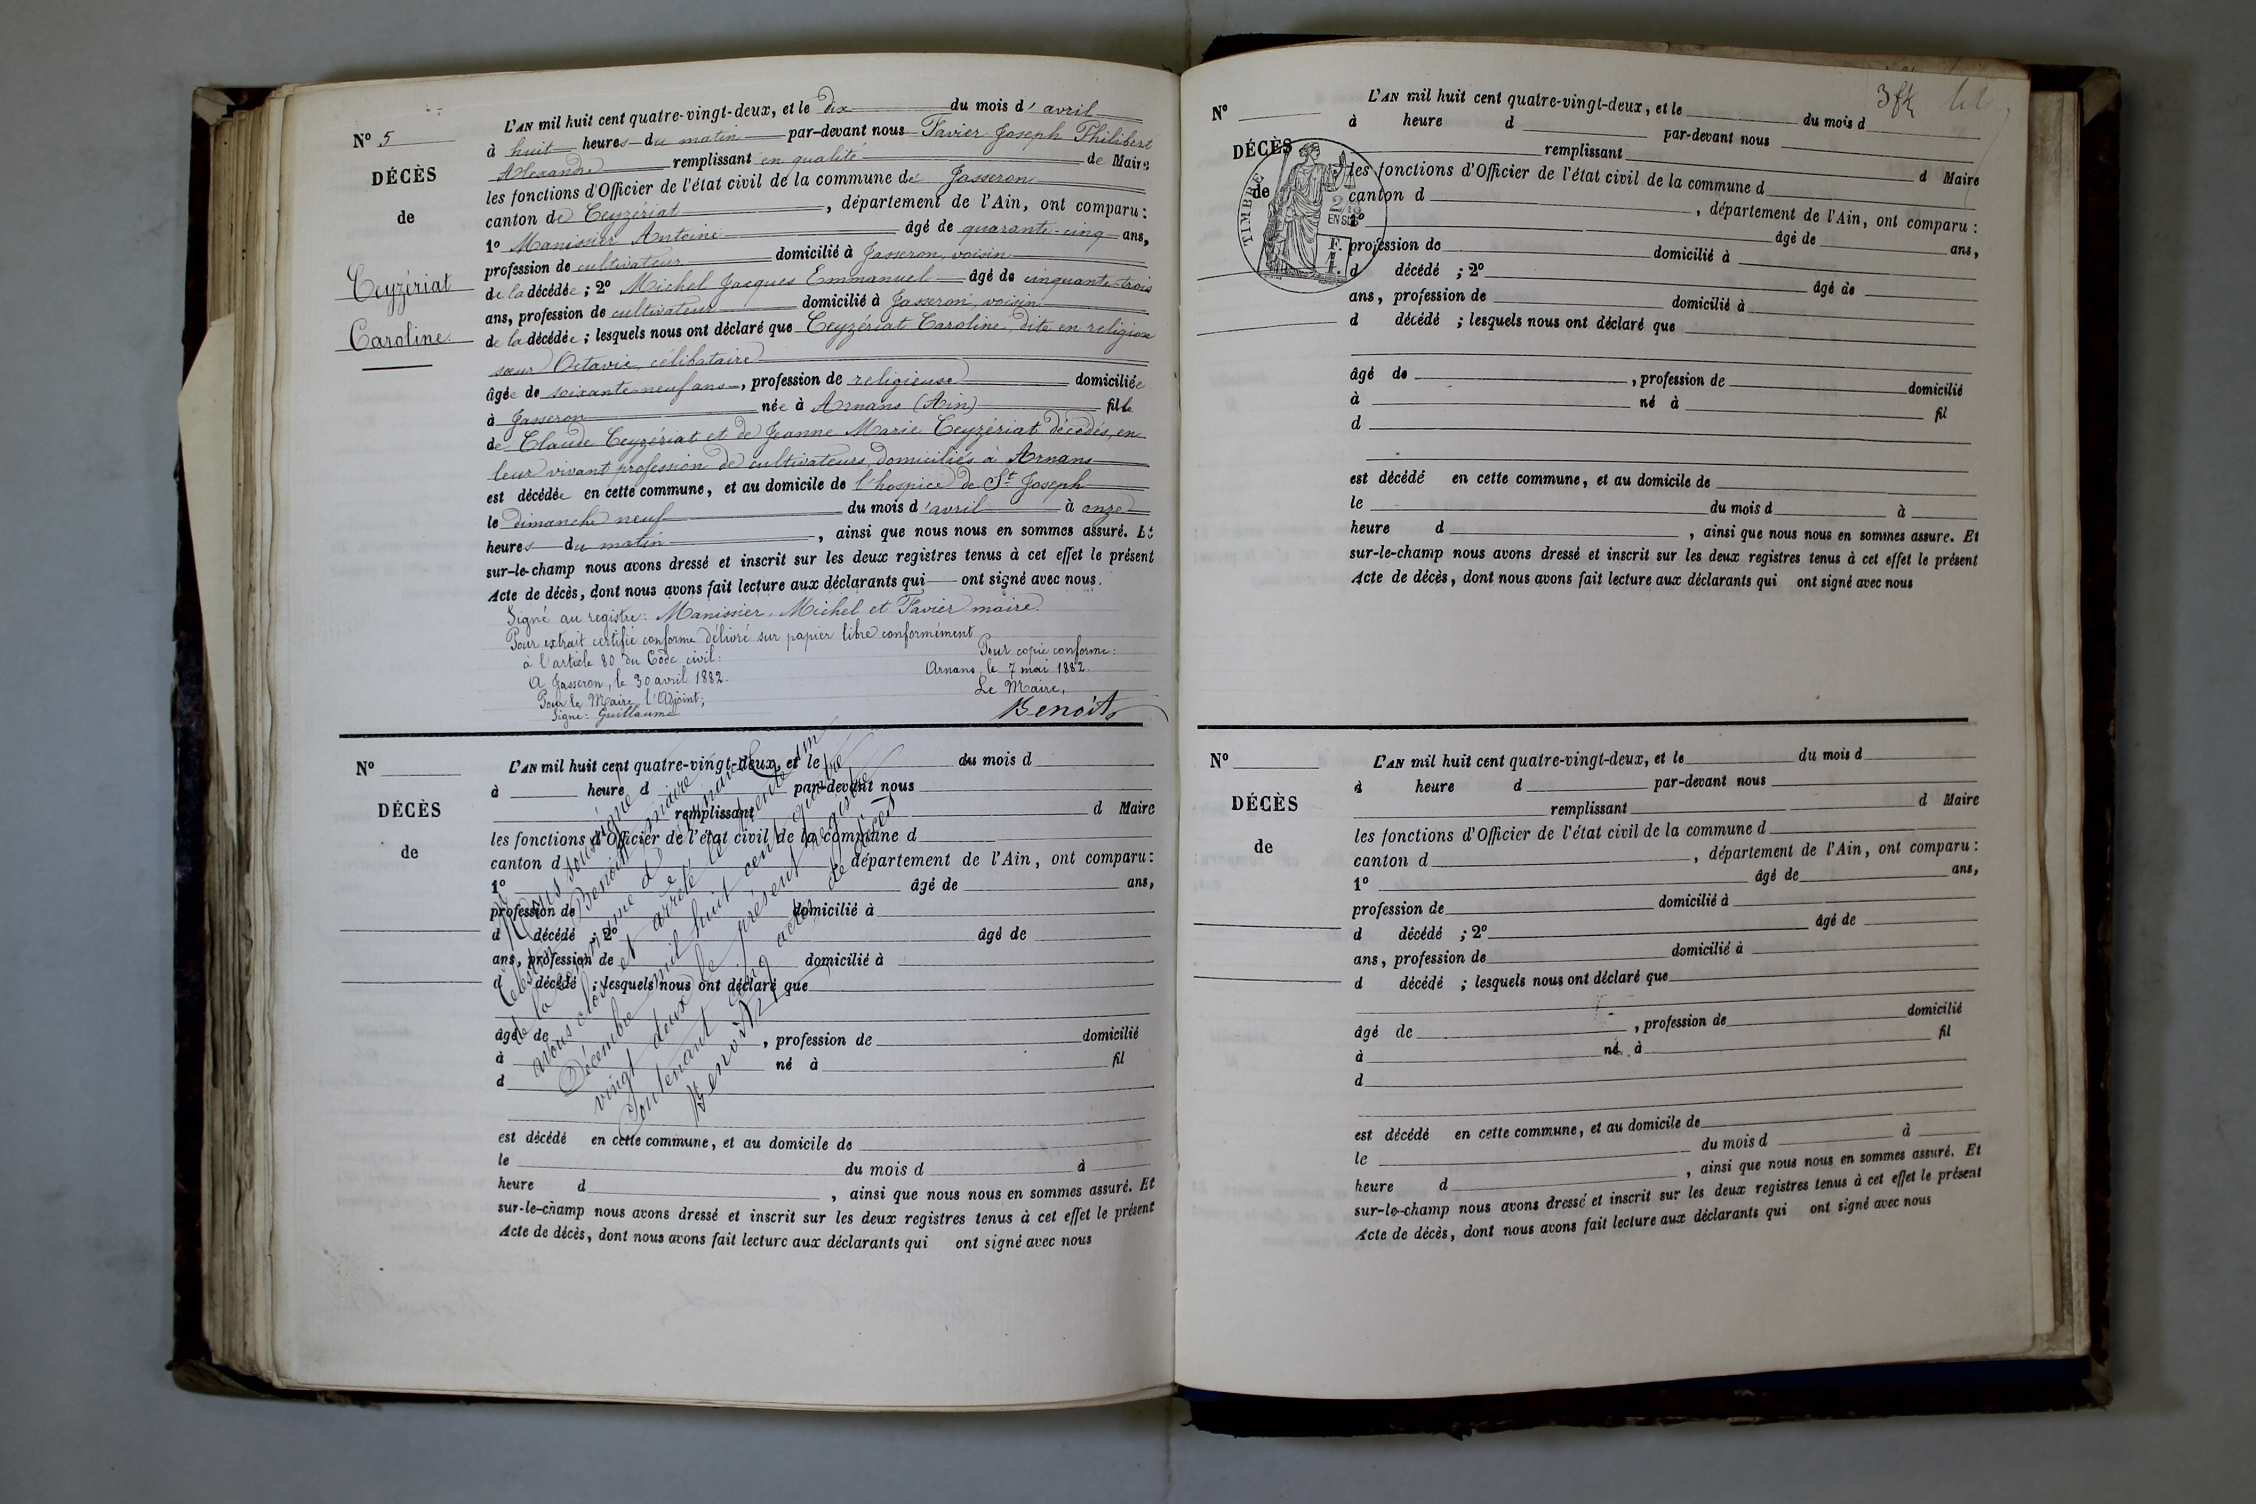 N° 5
DÉCÈS
de
Ceyzériat
Caroline
L'AN mil huit cent quatre-vingt-deux, et le dix du mois d'avril
à huit heures du matin par-devant nous Favier Joseph Philibert
Alexandre remplissant en qualité de Maire
les fonctions d'Officier de l'état civil de la commune de Jasseron
canton de Ceyzériat, département de l'Ain, ont comparu:
1° Manissier Antoine âgé de quarante-cinq ans,
profession de cultivateur domicilié à Jasseron, voisin
de la décédée; 2° Michel Jacques Emmanuel âgé de cinquante-trois
ans, profession de cultivateur domicilié à Jasseron, voisin
de la décédée; lesquels nous ont déclaré que Ceyzériat Caroline, dite en religion
sœur Octavie, célibataire
âgée de soixante-neuf ans, profession de religieuse domiciliée
à Jasseron née à Arnans (Ain) fille
de Claude Ceyzériat et de Jeanne Marie Ceyzériat décédés, en
leur vivant profession de cultivateurs, domiciliés à Arnans
est décédée en cette commune, et au domicile de l'hospice de St Joseph
le dimanche neuf du mois d'avril à onze
heures du matin, ainsi que nous nous en sommes assuré. Et
sur-le-champ nous avons dressé et inscrit sur les deux registres tenus à cet effet le présent
Acte de décès, dont nous avons fait lecture aux déclarants qui ont signé avec nous.
Signé au registre: Manissier, Michel et Favier maire.
Pour extrait certifié conforme délivré sur papier libre conformément
à l'article 80 du Code civil:
A Jasseron, le 30 avril 1882.
Pour le Maire, l'Adjoint;
Signé: Guillaume
Pour copie conforme:
Arnans, le 7 mai 1882.
Le Maire,
Benoit
N°
DÉCÈS
de
L'AN mil huit cent quatre-vingt-deux, et le du mois d
à heure d par-devant nous
remplissant d Maire
les fonctions d'Officier de l'état civil de la commune d
canton d , département de l'Ain, ont comparu:
1° âgé de ans,
profession de domicilié à
d décédé ; 2° âgé de
ans, profession de domicilié à
d décédé ; lesquels nous ont déclaré que
âgé de , profession de domicilié
à né à fil
d
est décédé en cette commune, et au domicile de
le du mois d à
heure d , ainsi que nous nous en sommes assuré. Et
sur-le-champ nous avons dressé et inscrit sur les deux registres tenus à cet effet le présent
Acte de décès, dont nous avons fait lecture aux déclarants qui ont signé avec nous
Nous soussigné
Benoit maire
de la commune d'Arnans
avons clos et arrêté le trente un
Décembre mil huit cent quatre
vingt deux le présent registre
Contenant cinq actes de décès
Benoit
3fk
N°
DÉCÈS
de
TIMBRE
2/10
EN SUS
L'AN mil huit cent quatre-vingt-deux, et le du mois d
à heure d par-devant nous
remplissant d Maire
les fonctions d'Officier de l'état civil de la commune d
canton d , département de l'Ain, ont comparu:
1° âgé de ans,
profession de domicilié à
d décédé ; 2° âgé de
ans, profession de domicilié à
d décédé ; lesquels nous ont déclaré que
âgé de , profession de domicilié
à né à fil
d
est décédé en cette commune, et au domicile de
le du mois d à
heure d , ainsi que nous nous en sommes assure. Et
sur-le-champ nous avons dressé et inscrit sur les deux registres tenus à cet effet le présent
Acte de décès, dont nous avons fait lecture aux déclarants qui ont signé avec nous
N°
DÉCÈS
de
L'AN mil huit cent quatre-vingt-deux, et le du mois d
à heure d par-devant nous
remplissant d Maire
les fonctions d'Officier de l'état civil de la commune d
canton d , département de l'Ain, ont comparu:
1° âgé de ans,
profession de domicilié à
d décédé ; 2° âgé de
ans, profession de domicilié à
d décédé ; lesquels nous ont déclaré que
âgé de , profession de domicilié
à né à fil
d
est décédé en cette commune, et au domicile de
le du mois d à
heure d , ainsi que nous nous en sommes assuré. Et
sur-le-champ nous avons dressé et inscrit sur les deux registres tenus à cet effet le présent
Acte de décès, dont nous avons fait lecture aux déclarants qui ont signé avec nous